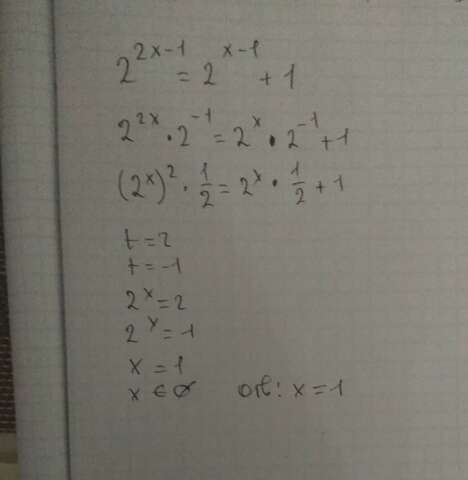 2^{2x-1} = 2^{x-1} + 1
2^{2x} · 2^{-1} = 2^x · 2^{-1} + 1
(2^x)^2 · 1/2 = 2^x · 1/2 + 1
t = 2
t = -1
2^x = 2
2^x = -1
x = 1
x ∈ ∅ отв: x = 1